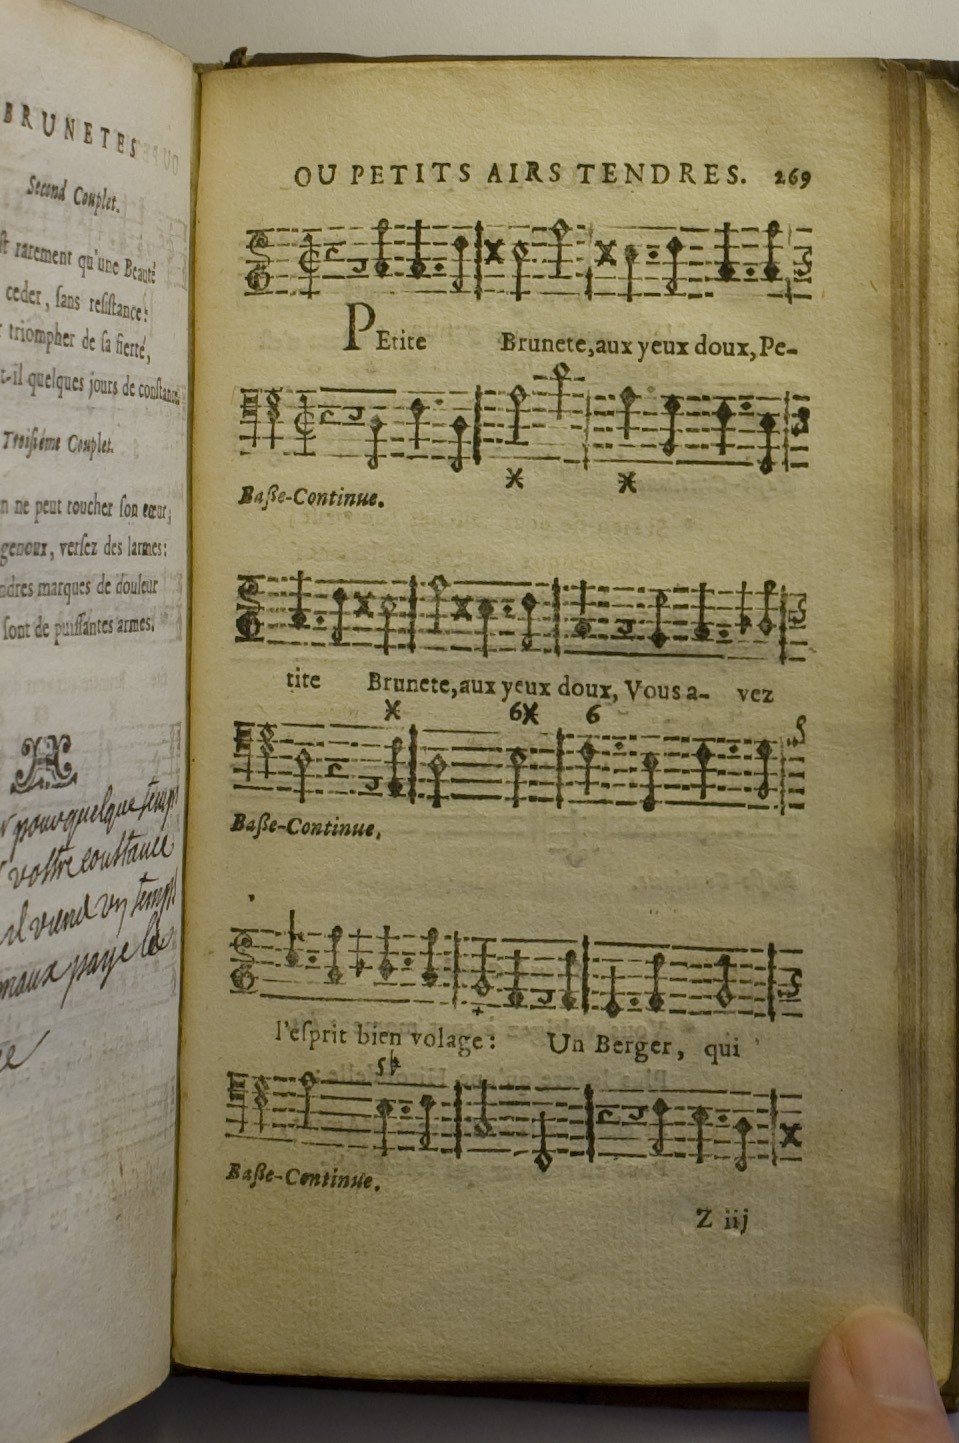 BRUNETES
Second Couplet.
rarement qu'une Beauté
ceder, sans resistance:
triompher de sa fierté,
t-il quelques jours de constance
Troisiéme Couplet.
ne peut toucher son cœur;
genoux, versez des larmes:
ndres marques de douleur
sont de puissantes armes.
pour quelque temps
vostre constance
il viend un temps
maux paye les
OU PETITS AIRS TENDRES. 269
PEtite Brunete, aux yeux doux, Pe-
Baße-Continue.
tite Brunete, aux yeux doux, Vous a- vez
6 6
Baße-Continue,
l'esprit bien volage: Un Berger, qui
5
Baße-Continue.
Z iij